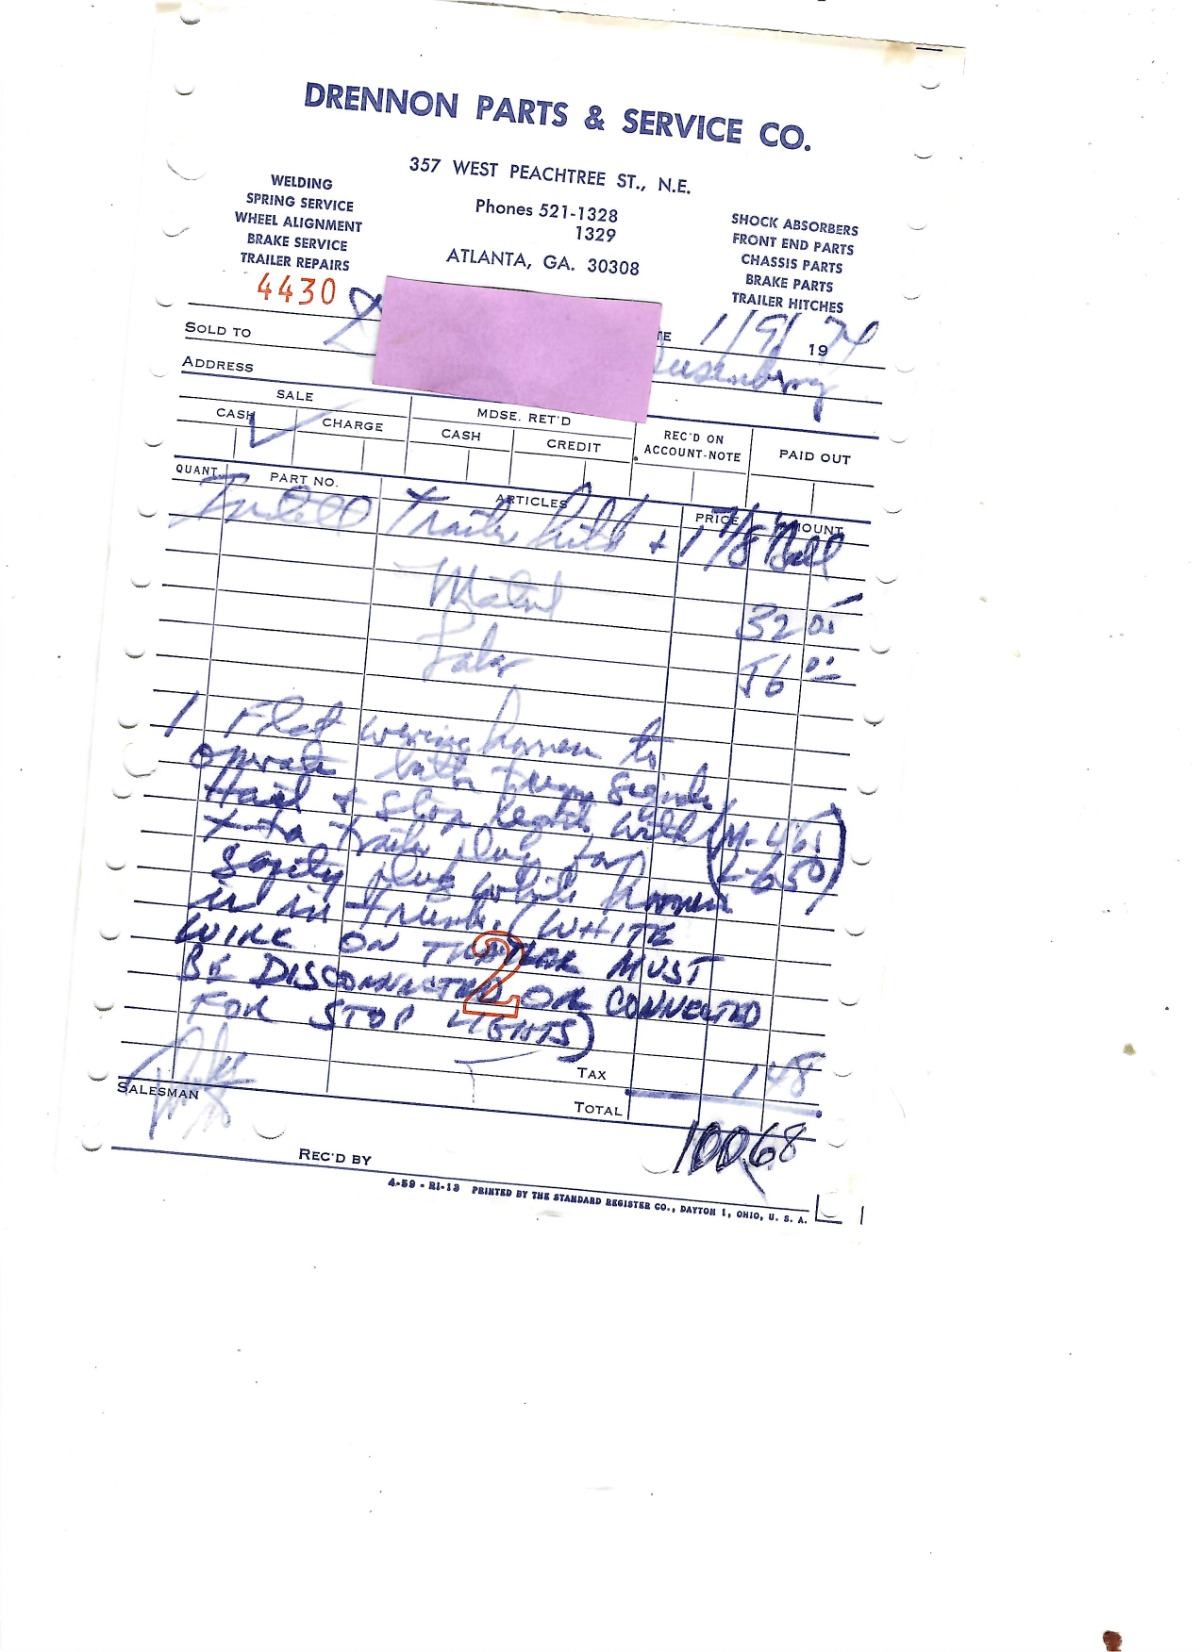 DRENNON PARTS & SERVICE CO.
357 WEST PEACHTREE ST., N.E.
Phones 521-1328
1329
ATLANTA, GA. 30308
WELDING
SPRING SERVICE
WHEEL ALIGNMENT
BRAKE SERVICE
TRAILER REPAIRS
SHOCK ABSORBERS
FRONT END PARTS
CHASSIS PARTS
BRAKE PARTS
TRAILER HITCHES
4430
1/9/ 1974
SOLD TO
ADDRESS
SALE MDSE. RET'D REC'D ON ACCOUNT-NOTE PAID OUT
CASH CHARGE CASH CREDIT
QUANT. PART NO. ARTICLES PRICE AMOUNT
Install Trailer hitch + 1 7/8 Ball
Matrl 32
Labor 56 00
1 Flat wiring harness to
operate both turn signals
+ stop lights with (M-
x-tra trailer plug for L-650)
safety plug while harness
is in trunk. (WHITE
WIRE ON MUST
BE DISCONNECTED OR CONNECTED
FOR STOP LIGHTS)
2
TAX 1 48
SALESMAN
TOTAL 100.68
REC'D BY
4-59 - RI-13 PRINTED BY THE STANDARD REGISTER CO., DAYTON 1, OHIO, U. S. A.